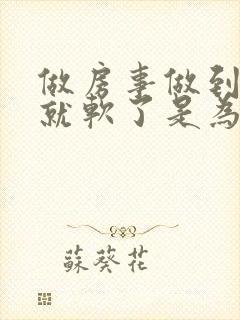 做房事做到
就軟了是為
蘇葵花